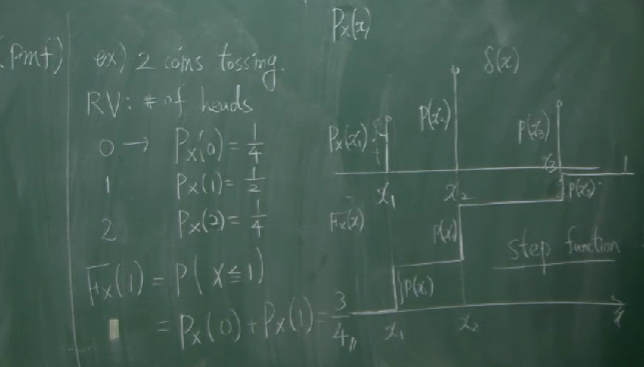 (pmf)
ex) 2 coins tossing.
RV: # of heads
0 → Px(0) = 1/4
1 Px(1) = 1/2
2 Px(2) = 1/4
Fx(1) = P(X ≦ 1)
= Px(0) + Px(1) = 3/4
Px(x)
δ(x)
Px(x₁) P(x₂) P(x₃)
x₁ x₂ x₃
Fx(x)
P(x₁) P(x₂) P(x₃)
step function
x₁ x₂